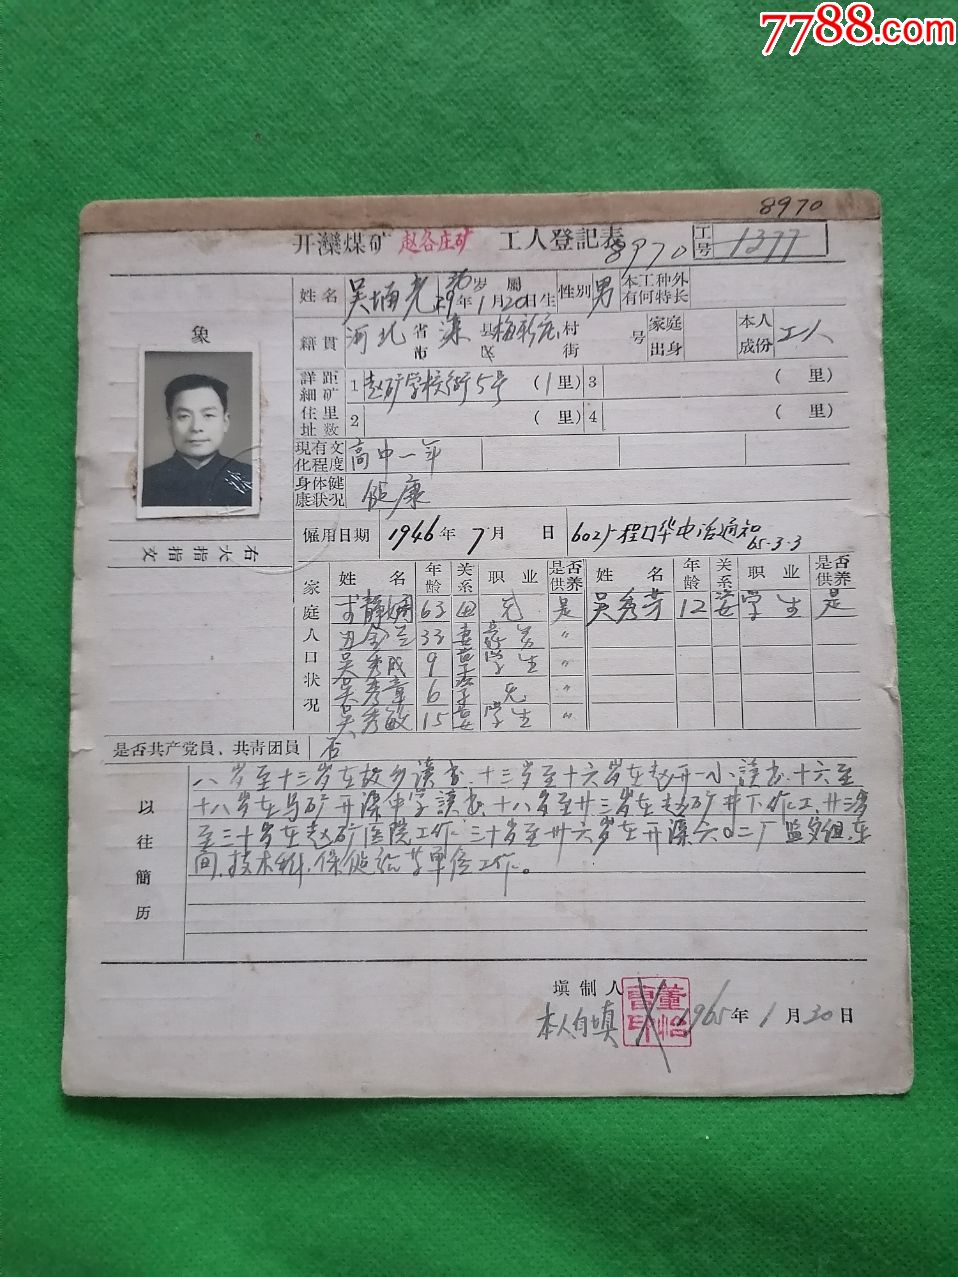 7788.com
8970
开灤煤矿 赵各庄矿 工人登記表 8970 工号 1377
姓名 吴埇光 36岁 属 29年1月20日生 性别 男 本工种外有何特长
象
籍貫 河北 省市 滦 县区 梅新庄 村街 号 家庭出身 本人成份 工人
詳細住址 距矿里数 1 赵矿学校街5号 (1里) 3 ( 里)
2 ( 里) 4 ( 里)
現有文化程度 高中一年
身体健康状况 健康
僱用日期 1946年7月 日 602厂程口华电话通知
65.3.3
右大指指文
家庭人口状况
姓名 年龄 关系 职业 是否供养 姓名 年龄 关系 职业 是否供养
静娴 63 母 无 是 吴秀芳 12 女 学生 是
33 妻 〃
吴秀成 9 子 学生 〃
吴秀章 6 子 无 〃
吴秀敏 15 女 学生 〃
是否共产党員、共青团員 否
以往简历
八岁至十三岁在故乡读书、十三岁至十六岁在赵开一小读书、十六至
十八岁在马矿开滦中学读书、十八岁至廿三岁在赵矿井下作工、廿三岁
至三十岁在赵矿医院工作、三十岁至卅六岁在开滦六〇二厂监安组、车
间、技术科、保健站等单位工作。
填制人 董怡 印 1965年1月20日
本人自填